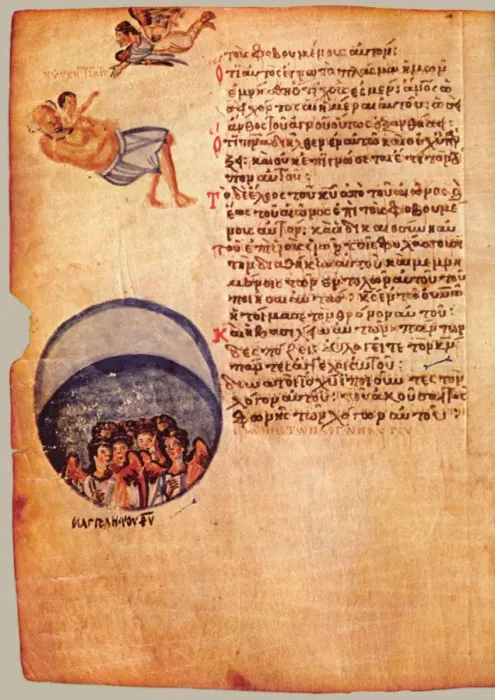 τοὺς φοβουμένους αὐτόν:
Ὅτι αὐτὸς ἔγνω τὸ πλάσμα ἡμῶν
ἐμνήσθη ὅτι χοῦς ἐσμέν: ἄνος ὡ
σεὶ χόρτος αἱ ἡμέραι αὐτοῦ: ὡσεὶ
ἄνθος τοῦ ἀγροῦ οὕτως ἐξανθήσει:
Ὅτι πνα διῆλθεν ἐν αὐτῶ καὶ οὐχ ὑπάρ
ξει: καὶ οὐκ ἐπιγνώσεται ἔτι τὸν τό
πον αὐτοῦ:
Τὸ δὲ ἔλεος τοῦ κυ ἀπὸ τοῦ αἰῶνος καὶ
ἕως τοῦ αἰῶνος ἐπὶ τοὺς φοβουμέ
νους αὐτόν: καὶ ἡ δικαιοσύνη αὐ
τοῦ ἐπὶ υἱοῖς υἱῶν τοῖς φυλάσσουσι
τὴν διαθήκην αὐτοῦ καὶ μεμνη
μένοις τῶν ἐντολῶν αὐτοῦ τοῦ
ποιῆσαι αὐτάς: κς ἐν τῶ οὐνῶ
ἡτοίμασε τὸν θρόνον αὐτοῦ:
Καὶ ἡ βασιλεία αὐτοῦ πάντων
δεσπόζει: εὐλογεῖτε τὸν κν
πάντες οἱ ἄγγελοι αὐτοῦ:
δυνατοὶ ἰσχύι ποιοῦντες τὸν
λόγον αὐτοῦ: τοῦ ἀκοῦσαι τῆς
φωνῆς τῶν λόγων αὐτοῦ:
ΟΙ ΑΓΓΕΛΟΙ ΤΟΥ ΘΥ